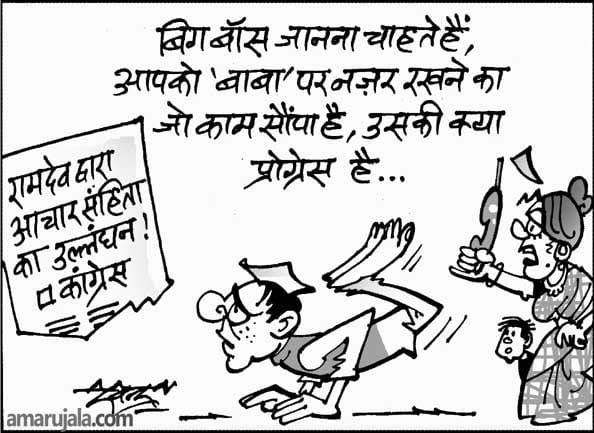 बिग बॉस जानना चाहते हैं,
आपको 'बाबा' पर नज़र रखने का
जो काम सौंपा है, उसकी क्या
प्रोग्रेस है...
रामदेव द्वारा
आचार संहिता
का उल्लंघन!
कांग्रेस
amarujala.com